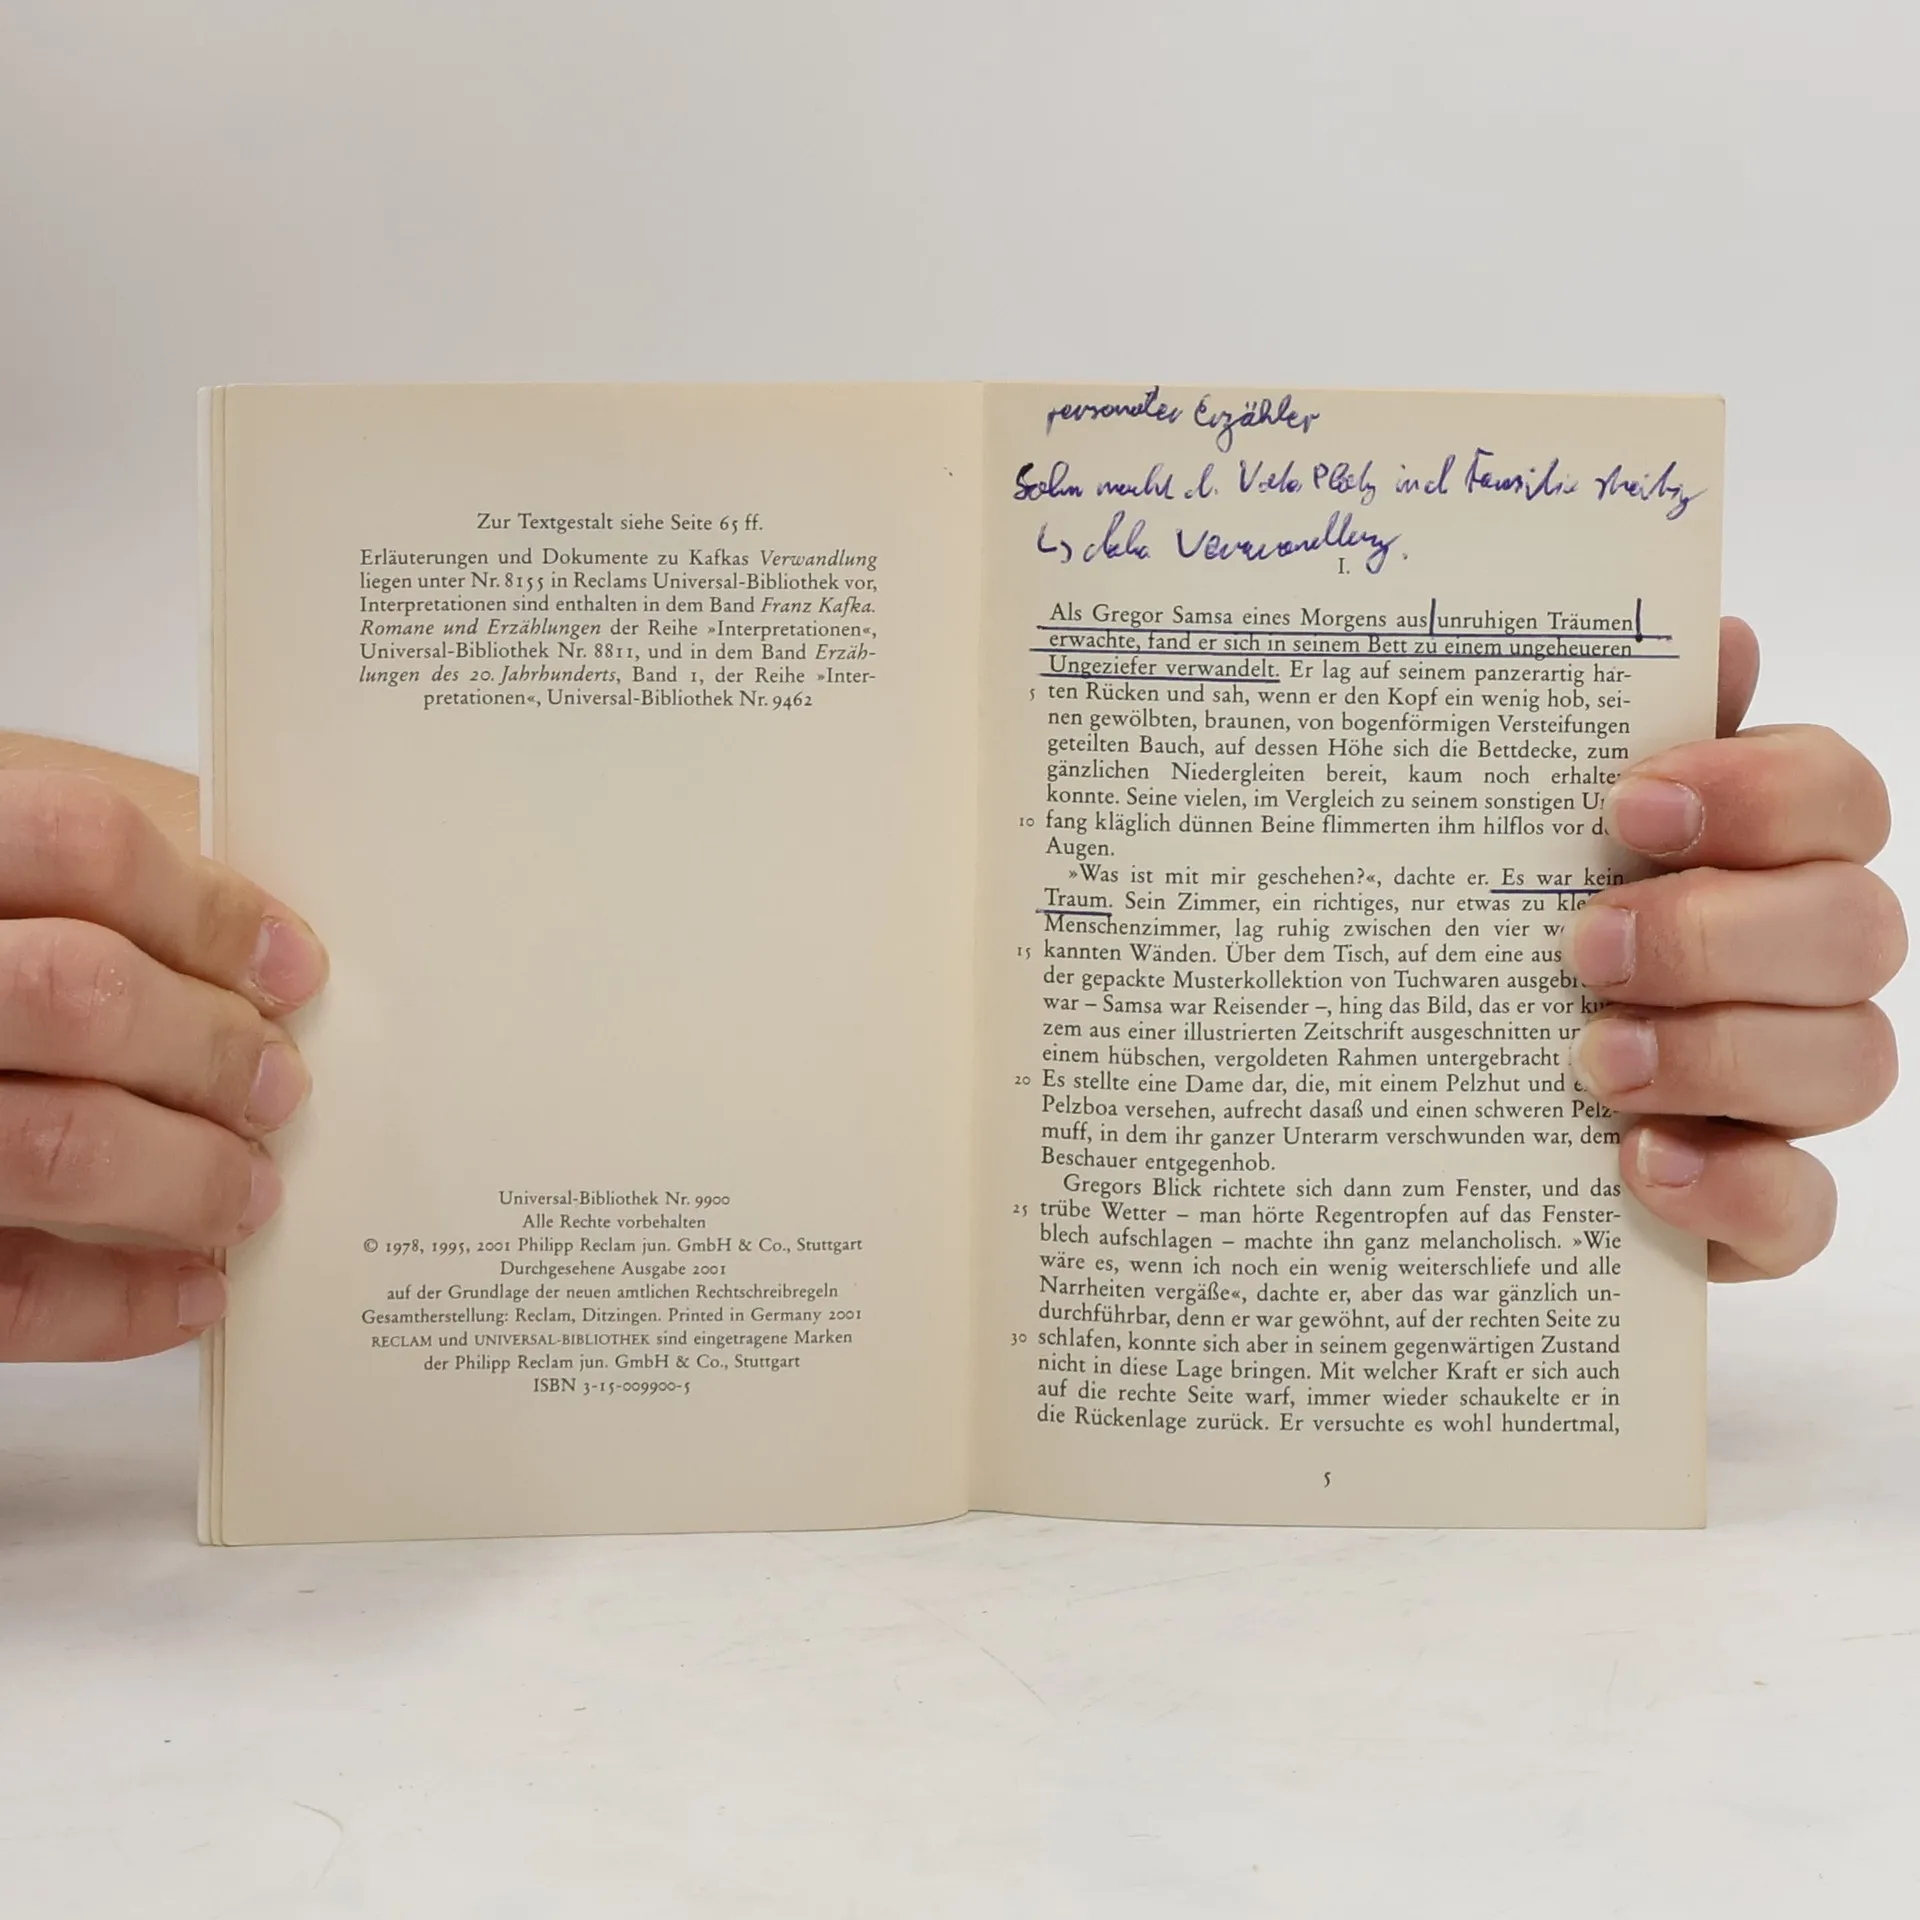 Zur Textgestalt siehe Seite 65 ff.
Erläuterungen und Dokumente zu Kafkas Verwandlung
liegen unter Nr. 8155 in Reclams Universal-Bibliothek vor,
Interpretationen sind enthalten in dem Band Franz Kafka.
Romane und Erzählungen der Reihe »Interpretationen«,
Universal-Bibliothek Nr. 8811, und in dem Band Erzäh-
lungen des 20. Jahrhunderts, Band 1, der Reihe »Inter-
pretationen«, Universal-Bibliothek Nr. 9462
Universal-Bibliothek Nr. 9900
Alle Rechte vorbehalten
© 1978, 1995, 2001 Philipp Reclam jun. GmbH & Co., Stuttgart
Durchgesehene Ausgabe 2001
auf der Grundlage der neuen amtlichen Rechtschreibregeln
Gesamtherstellung: Reclam, Ditzingen. Printed in Germany 2001
RECLAM und UNIVERSAL-BIBLIOTHEK sind eingetragene Marken
der Philipp Reclam jun. GmbH & Co., Stuttgart
ISBN 3-15-009900-5
personaler Erzähler
Sohn macht d. Vater Platz in d Familie streitig
↳ daher Verwandlung.
I.
Als Gregor Samsa eines Morgens aus unruhigen Träumen
erwachte, fand er sich in seinem Bett zu einem ungeheueren
Ungeziefer verwandelt. Er lag auf seinem panzerartig har-
5 ten Rücken und sah, wenn er den Kopf ein wenig hob, sei-
nen gewölbten, braunen, von bogenförmigen Versteifungen
geteilten Bauch, auf dessen Höhe sich die Bettdecke, zum
gänzlichen Niedergleiten bereit, kaum noch erhalte
konnte. Seine vielen, im Vergleich zu seinem sonstigen U
10 fang kläglich dünnen Beine flimmerten ihm hilflos vor d
Augen.
»Was ist mit mir geschehen?«, dachte er. Es war kein
Traum. Sein Zimmer, ein richtiges, nur etwas zu kle
Menschenzimmer, lag ruhig zwischen den vier w
15 kannten Wänden. Über dem Tisch, auf dem eine aus
der gepackte Musterkollektion von Tuchwaren ausgeb
war – Samsa war Reisender –, hing das Bild, das er vor ku
zem aus einer illustrierten Zeitschrift ausgeschnitten u
einem hübschen, vergoldeten Rahmen untergebracht
20 Es stellte eine Dame dar, die, mit einem Pelzhut und e
Pelzboa versehen, aufrecht dasaß und einen schweren Pelz-
muff, in dem ihr ganzer Unterarm verschwunden war, dem
Beschauer entgegenhob.
Gregors Blick richtete sich dann zum Fenster, und das
25 trübe Wetter – man hörte Regentropfen auf das Fenster-
blech aufschlagen – machte ihn ganz melancholisch. »Wie
wäre es, wenn ich noch ein wenig weiterschliefe und alle
Narrheiten vergäße«, dachte er, aber das war gänzlich un-
durchführbar, denn er war gewöhnt, auf der rechten Seite zu
30 schlafen, konnte sich aber in seinem gegenwärtigen Zustand
nicht in diese Lage bringen. Mit welcher Kraft er sich auch
auf die rechte Seite warf, immer wieder schaukelte er in
die Rückenlage zurück. Er versuchte es wohl hundertmal,
5